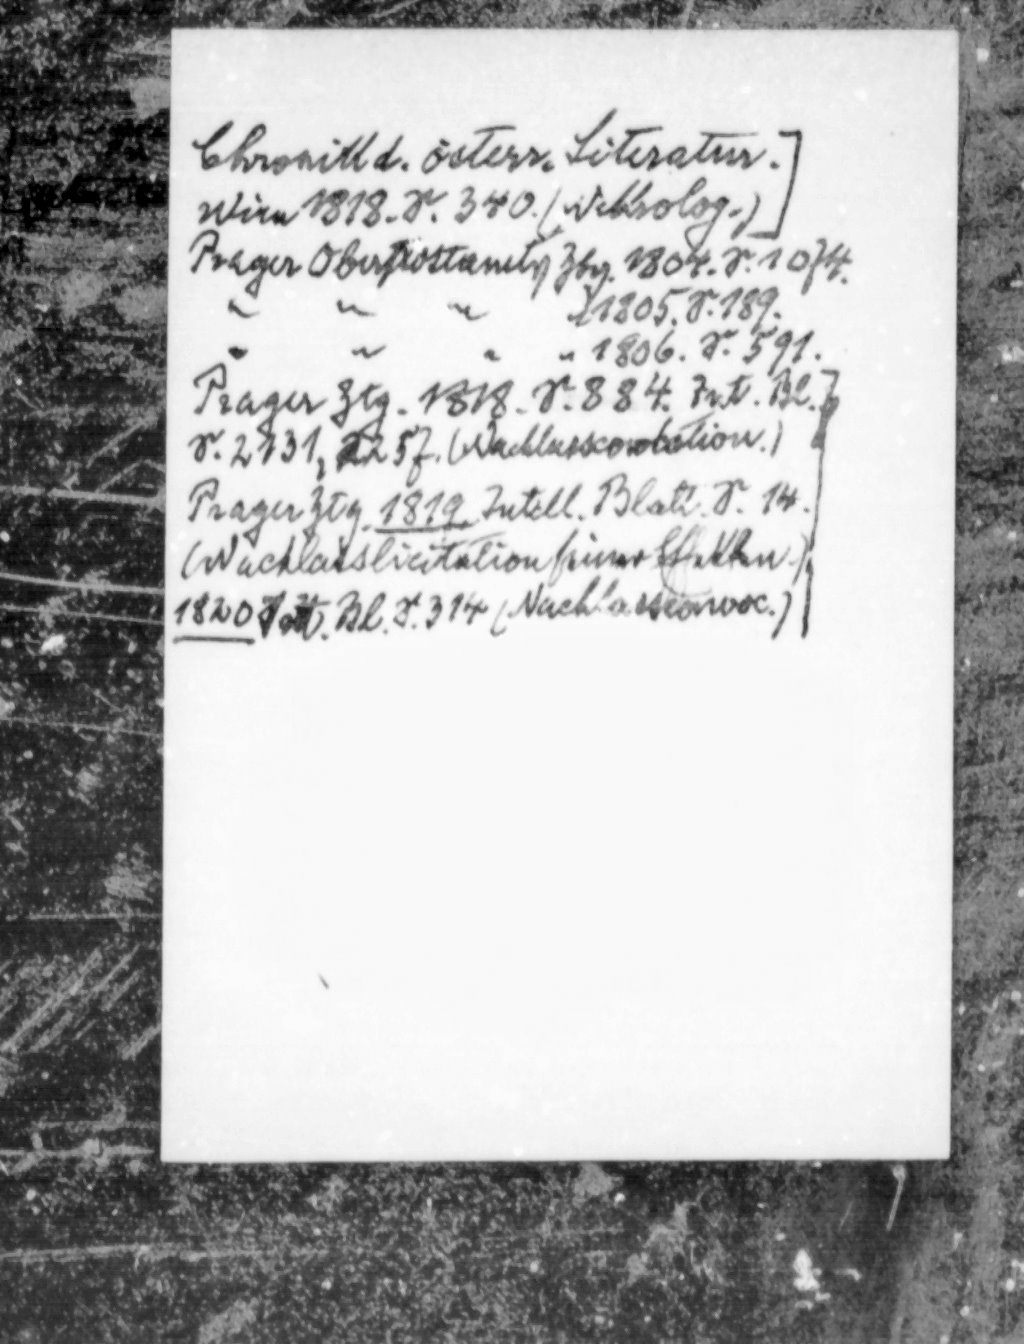 Chronik d. österr. Literatur.
Wien 1818. S. 340. (Nekrolog.)]
Prager Oberpostamts Ztg. 1804. S. 1074.
" " " 1805. S. 189.
" " " " 1806. S. 591.
Prager Ztg. 1818. S. 884. Int. Bl.
S. 2131, 2257. (Nachlassconvocation.)
Prager Ztg. 1819 Intell. Blatt. S. 14.
(Nachlasslicitation seiner Effekten.)
1820 Int. Bl. S. 314 (Nachlassconvoc.)